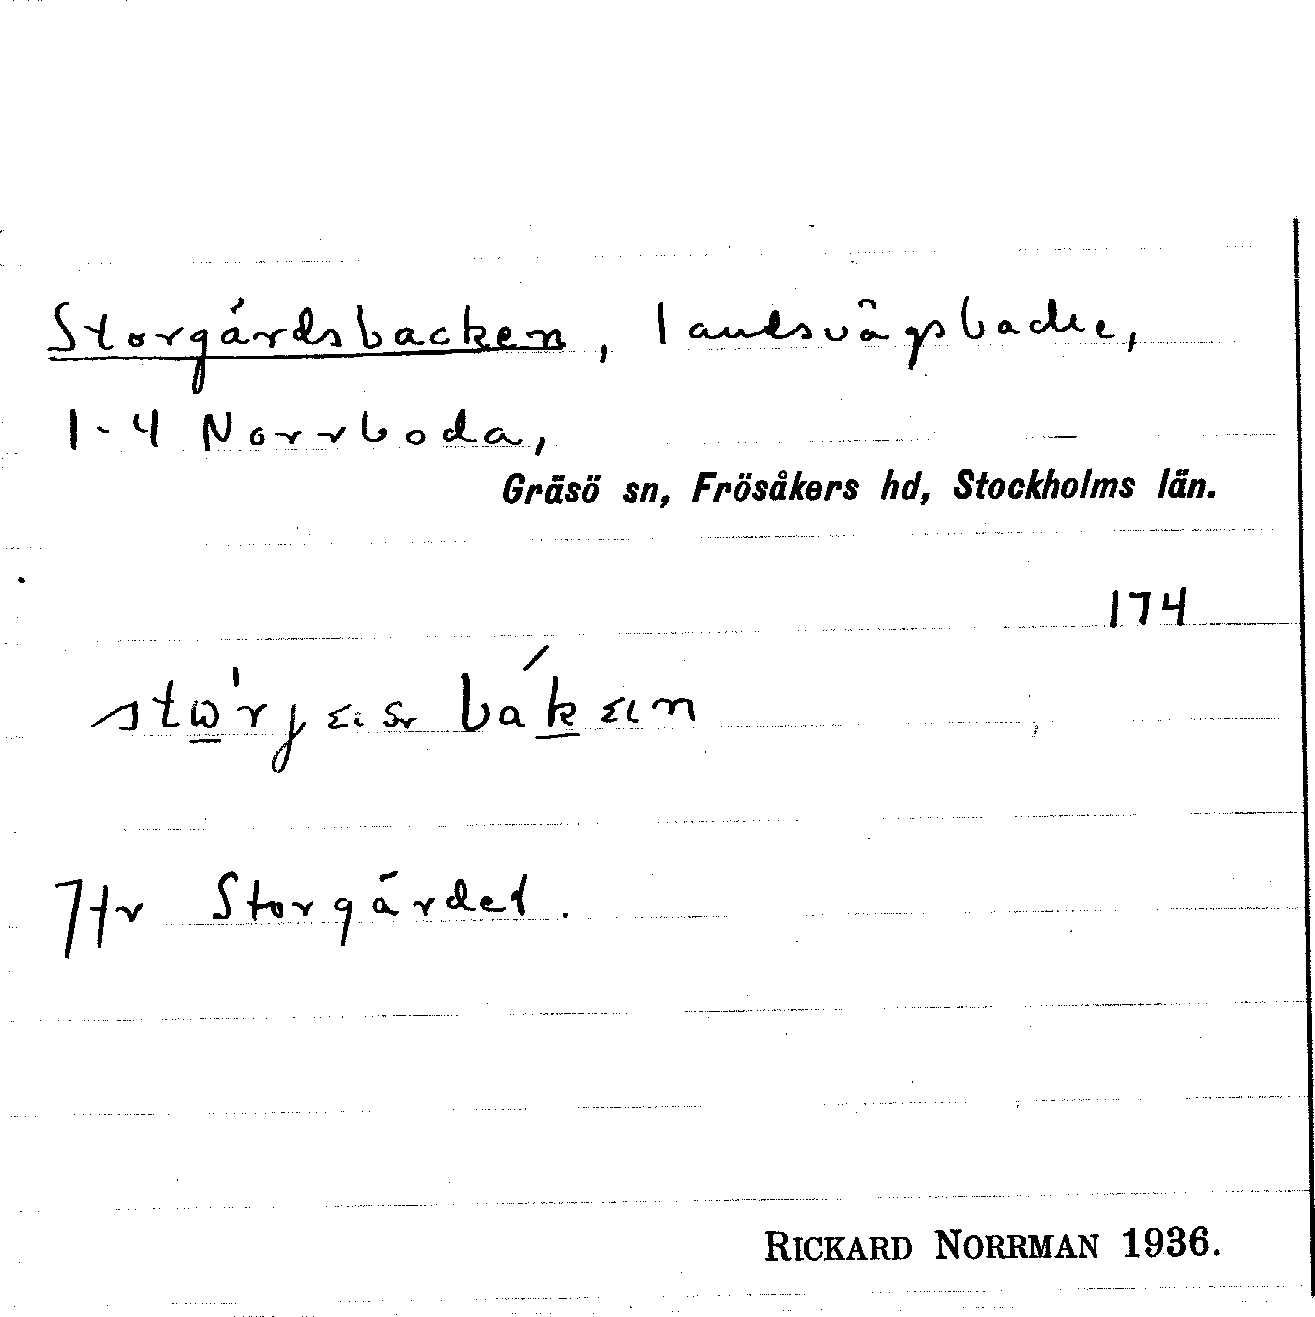 Storgärdsbacken, landsvägsbacke,
1-4 Norrboda,
Gräsö sn, Frösåkers hd, Stockholms län.
174
Jfr Storgärdet.
RICKARD NORRMAN 1936.